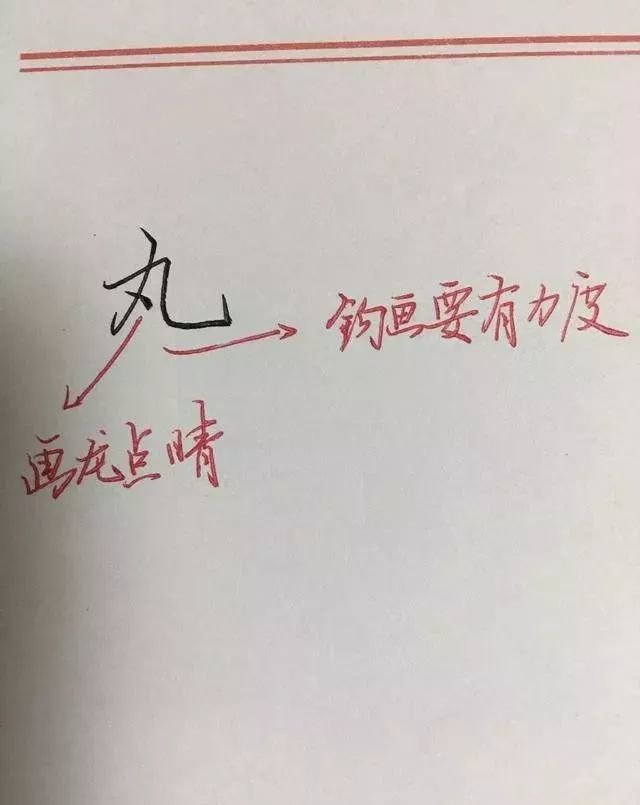 丸
钩画要有力度
画龙点晴